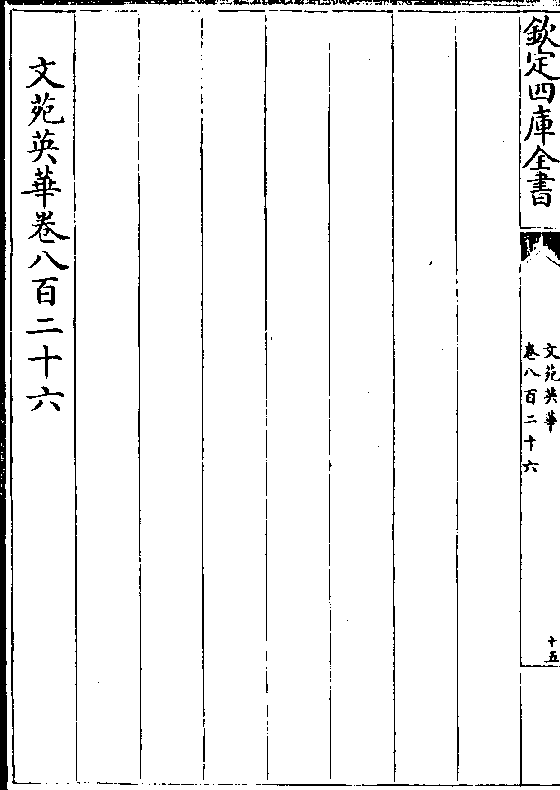 欽定四庫全書
文苑英華
卷八百二十六
十五
文苑英華卷八百二十六